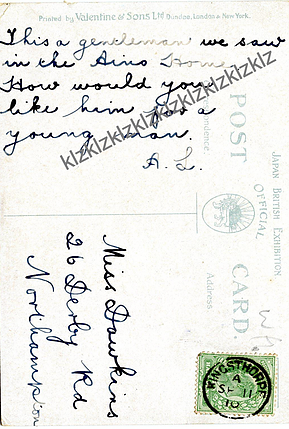 Printed by Valentine & Sons Ltd Dundee, London & New York.
This a gentleman we saw
in the Aino Home.
How would you
like him for a
young man.
A. L.
POST CARD.
JAPAN BRITISH EXHIBITION
OFFICIAL
Correspondence.
Address
Miss Dawkins
26 Derby Rd
Northampton
KINGSTHORPE
A
SP 11
10
klzklzklzklzklzklzklzklzklz